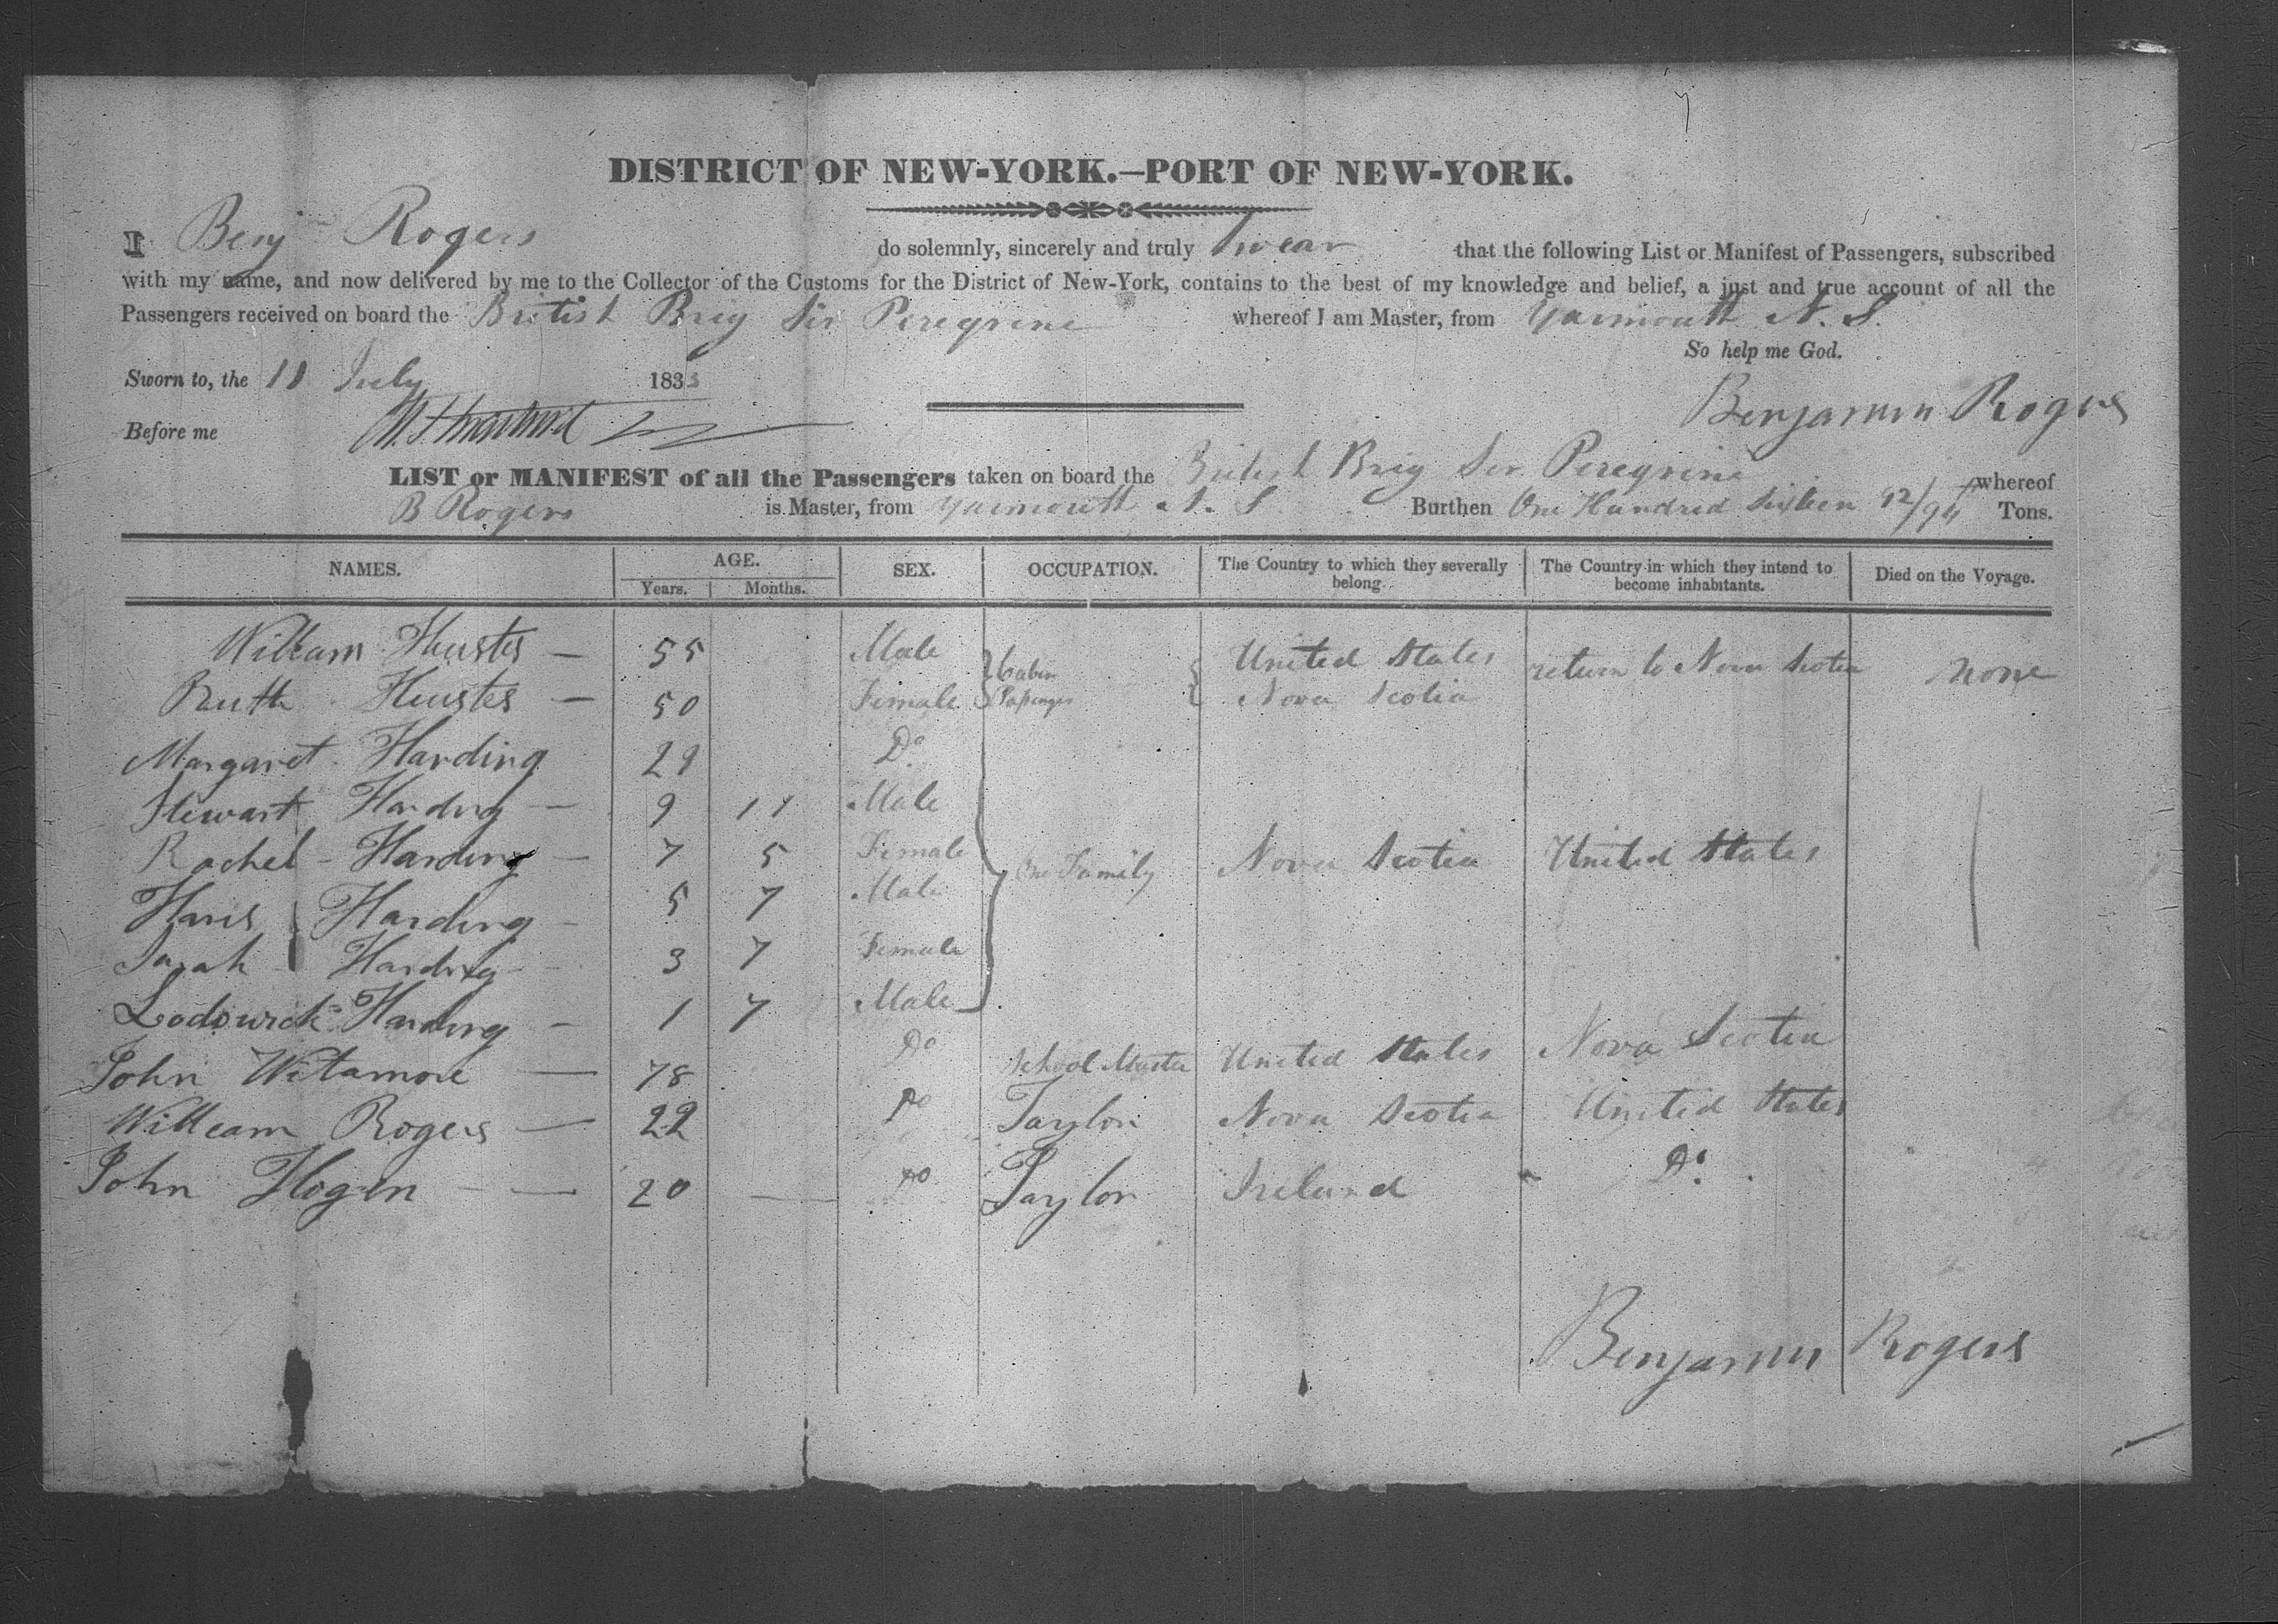 DISTRICT OF NEW-YORK.—PORT OF NEW-YORK.
I Benj Rogers do solemnly, sincerely and truly Swear that the following List or Manifest of Passengers, subscribed
with my name, and now delivered by me to the Collector of the Customs for the District of New-York, contains to the best of my knowledge and belief, a just and true account of all the
Passengers received on board the British Brig Sir Peregrine whereof I am Master, from Yarmouth N. S.
So help me God.
Sworn to, the July 183
Benjamin Rogers
Before me
LIST or MANIFEST of all the Passengers taken on board the British Brig Sir Peregrine whereof
B Rogers is Master, from Yarmouth N. S. Burthen One Hundred Sixteen 92/94 Tons.
NAMES. AGE. SEX. OCCUPATION. The Country to which they severally belong. The Country in which they intend to become inhabitants. Died on the Voyage.
Years. Months.
William Heustes — 55 Male Cabin United States return to Nova Scotia none
Ruth Heustes — 50 Female Passenger Nova Scotia
Margaret Harding 29 Do
Stewart Harding — 9 11 Male
Rachel - Harding — 7 5 Female One Family Nova Scotia United States
Haris Harding - 5 7 Male
Sarah Harding - 3 7 Female
Lodowick Harding — 1 7 Male
John Witamore — 78 Do School Master United States Nova Scotia
William Rogers — 22 Do Taylor Nova Scotia United States
John Hogan — 20 — Do Taylor Ireland Do.
Benjamin Rogers